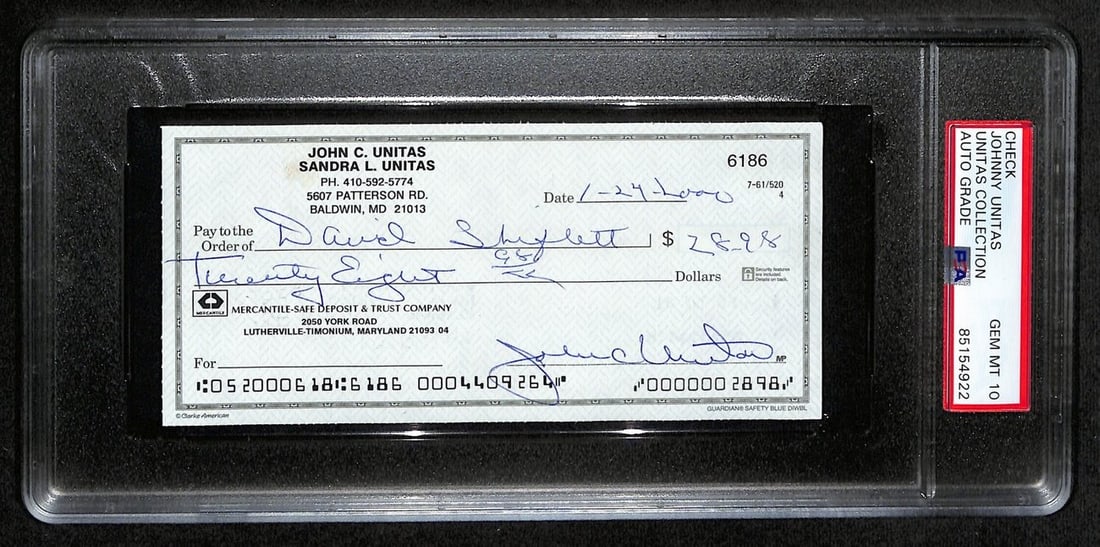 JOHN C. UNITAS
SANDRA L. UNITAS
PH. 410-592-5774
5607 PATTERSON RD.
BALDWIN, MD 21013
6186
7-61/520
4
Date 1-24-2000
Pay to the
Order of David Shiflett $ 28.98
Twenty Eight 98/xx Dollars
Security features
are included.
Details on back.
MERCANTILE
MERCANTILE-SAFE DEPOSIT & TRUST COMPANY
2050 YORK ROAD
LUTHERVILLE-TIMONIUM, MARYLAND 21093 04
For John C Unitas MP
⑆052000618⑆6186 0004409264⑈ ⑈0000002898⑈
© Clarke American
GUARDIAN® SAFETY BLUE DIWBL
CHECK
JOHNNY UNITAS
UNITAS COLLECTION
AUTO GRADE
GEM MT 10
85154922
PSA